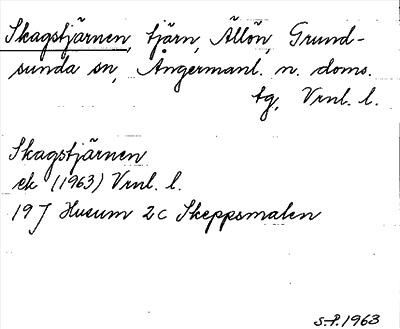 Skagstjärnen, tjärn, Ällön, Grund-
sunda sn, Ångermanl. n. doms.
tg, Vrnl. l.
Skagstjärnen
ek (1963) Vrnl. l.
19J Husum 2c Skeppsmalen
S-P. 1963